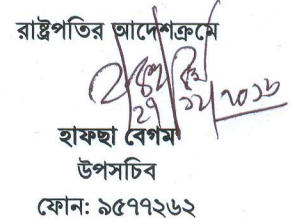 রাষ্ট্রপতির আদেশক্রমে
হাফছা বেগম
উপসচিব
ফোন: ৯৫৭৭২৬২